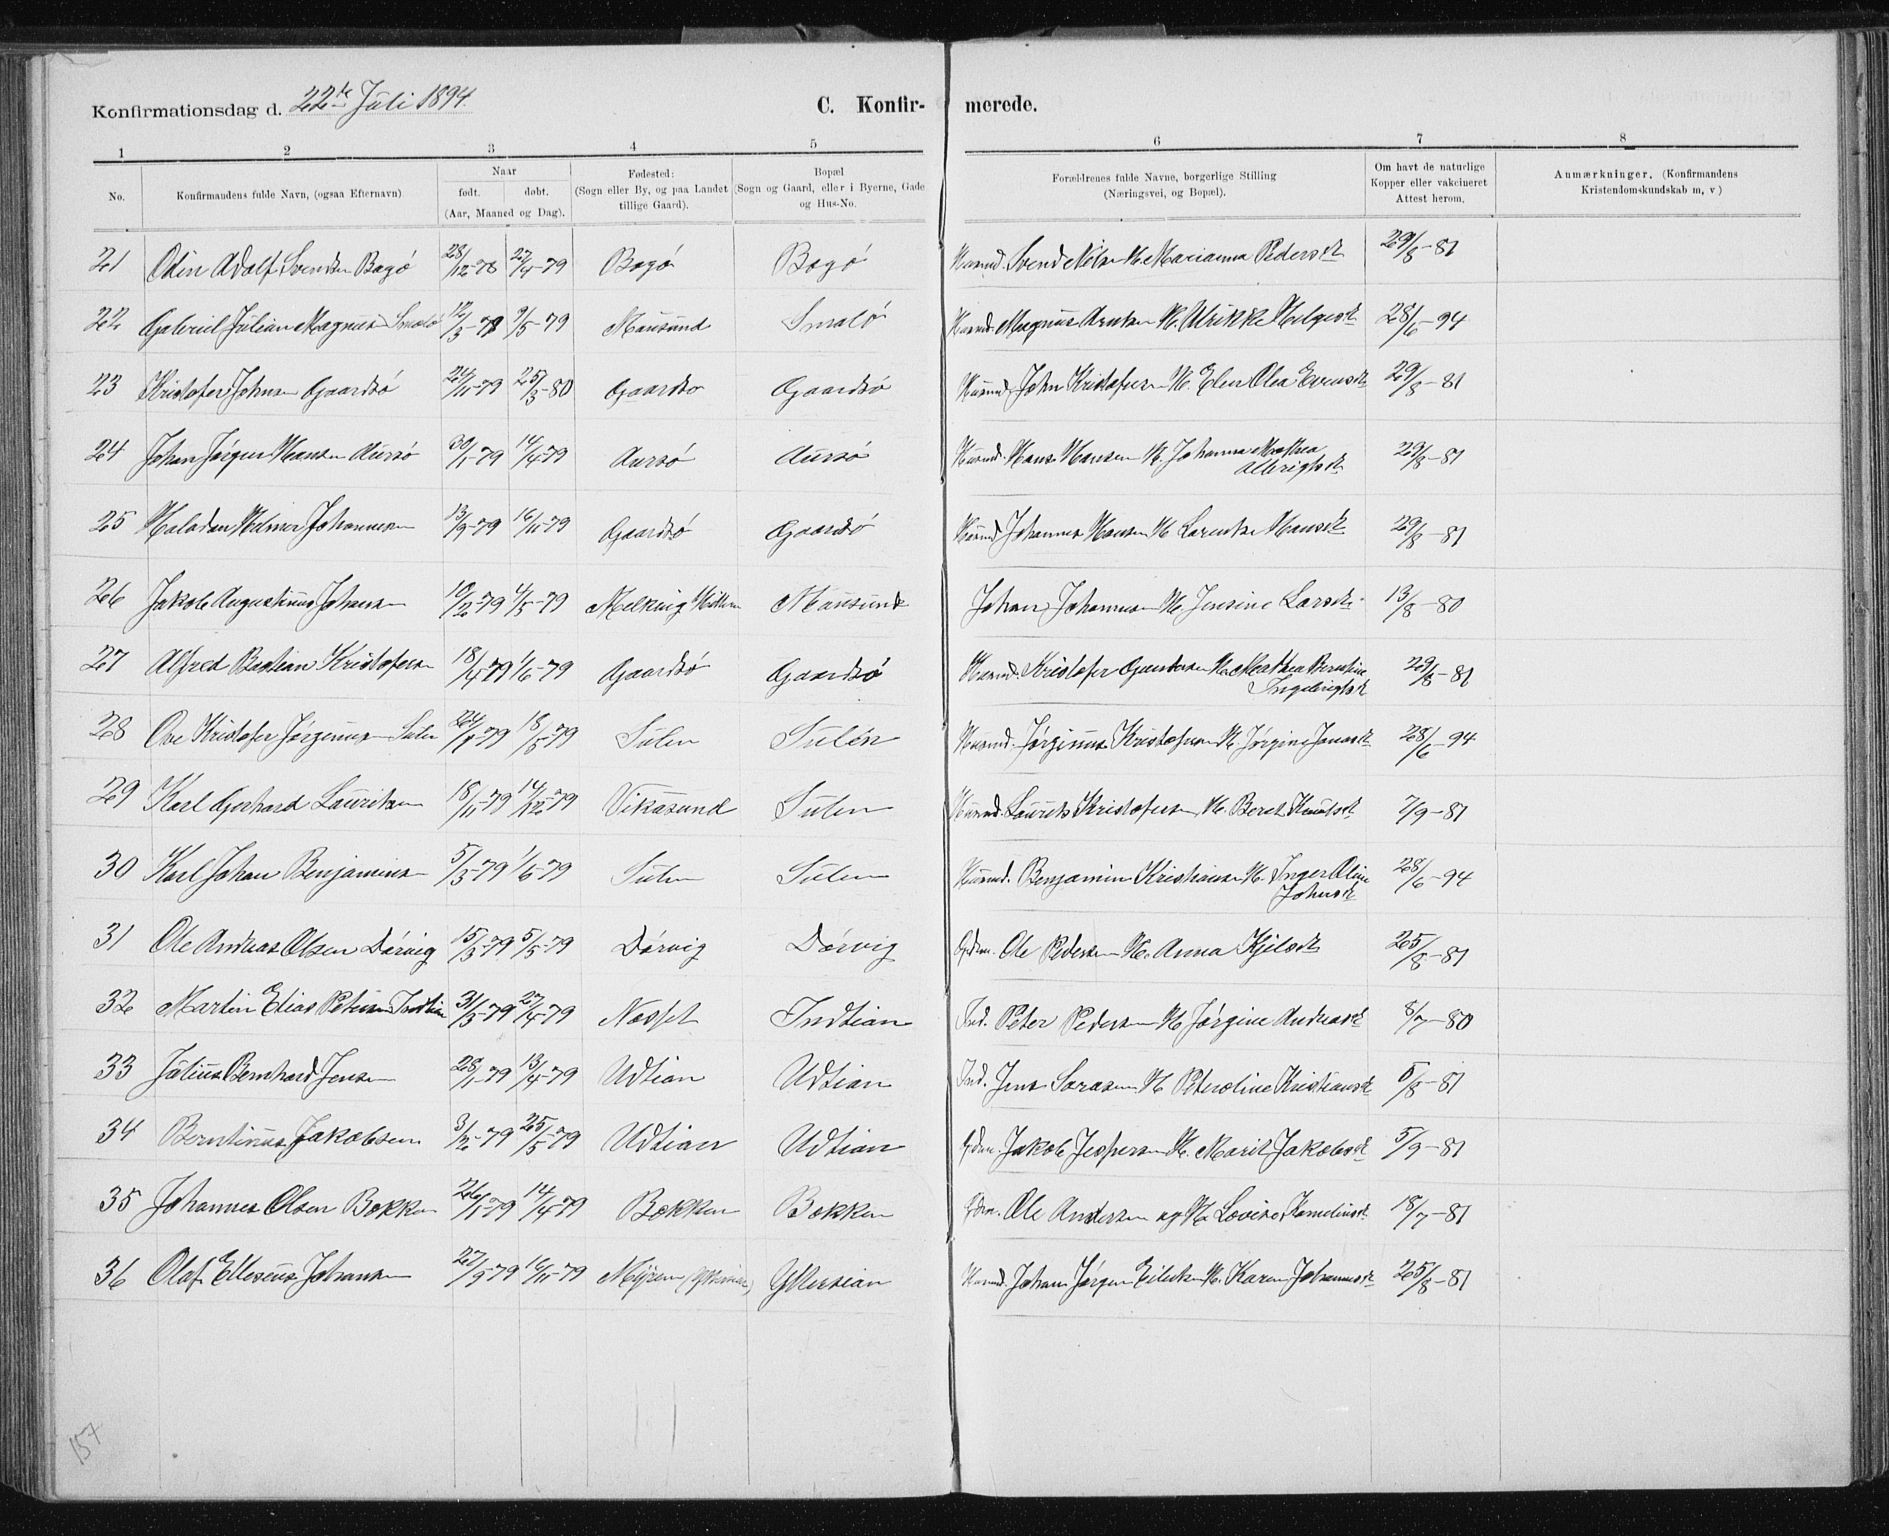 Konfirmationsdag d. 22de Juli 1894. C. Konfir- merede.
1 2 3 4 5 6 7 8
No. Konfirmandens fulde Navn, (ogsaa Efternavn) Naar født. døbt. (Aar, Maaned og Dag). Fødested: (Sogn eller By, og paa Landet tillige Gaard). Bopæl (Sogn og Gaard, eller i Byerne, Gade og Hus-No. Forældrenes fulde Navne, borgerlige Stilling (Næringsvei, og Bopæl). Om havt de naturlige Kopper eller vakcineret Attest herom. Anmærkninger. (Konfirmandens Kristendomskundskab m, v)
21 Odin Adolf Svendsen Bogø 28/12-78 27/4-79 Bogø Bogø Husmd. Svend Nilsen H. Marianna Pedersdt 29/8-81
22 Gabriel Julian Magnus Smalø 12/3-79 9/5-79 Mausund Smalø Husmd. Magnus Arntsen H. Ulrikke Helgesdt 28/6-94
23 Kristofer Johnsen Gaardsø 24/11-79 25/3-80 Gaardsø Gaardsø Husmd. John Kristofersen H. Elen Olea Evensdt 29/8-81
24 Johan Jørgen Hansen Aursø 30/1-79 14/4-79 Aursø Aursø Husmd. Hans Hansen H. Johanna Mathea Albrigtsdt 29/8-81
25 Halvdan Helmer Johannesen 13/9-79 16/11-79 Gaardsø Gaardsø Husmd. Johannes Hansen H. Larentse Hansdt 29/8-81
26 Jakob Augustinus Johansen 10/2-79 4/5-79 Melkvig Hitteren Mausund Johan Johannesen H. Jensine Larsdt. 13/8-80
27 Alfred Bastian Kristofersen 18/4-79 1/6-79 Gaardsø Gaardsø Husmd. Kristofer Gundersen H. Mathea Berntine Ingebrigtsdt 29/8-81
28 Ove Kristofer Jørginusen Sulen 24/1-79 18/5-79 Sulen Sulen Husmd. Jørginus Kristofersen H. Jørgine Jonasdt 28/6-94
29 Karl Gerhard Lauritsen 18/11-79 14/12-79 Vikasund Sulen Husmd. Laurits Kristofersen H. Beret Knutsdt 7/9-81
30 Karl Johan Benjaminsen 5/3-79 1/6-79 Sulen Sulen Husmd. Benjamin Kristiansen H. Inger Oline Johnsdt 28/6-94
31 Ole Andreas Olsen Dørvig 15/3-79 5/5-79 Dørvig Dørvig Gdm. Ole Pedersen H. Anna Kjelsdt 25/8-81
32 Martin Elias Petersen Indtian 31/3-79 27/4-79 Nesset Indtian Ind. Peter Pedersen H. Jørgine Andreasdt 8/7-80
33 Julius Bernhard Jensen 28/1-79 13/4-79 Udtian Udtian Ind. Jens Sorasen H. Peteroline Kristiansdt 5/8-81
34 Berntinus Jakobsen 3/12-79 25/5-79 Udtian Udtian Gdm. Jakob Jespersen H. Marit Jakobsdt 5/9-81
35 Johannes Olsen Bekken 26/1-79 14/4-79 Bekken Bekken Gdm. Ole Andersen og H. Lovise Korneliusdt 18/7-81
36 Olaf Elleseus Johansen 27/9-79 16/11-79 Myren Yttersian Husmd. Johan Jørgen Eilertsen H. Karen Johannesdt 25/8-81
157